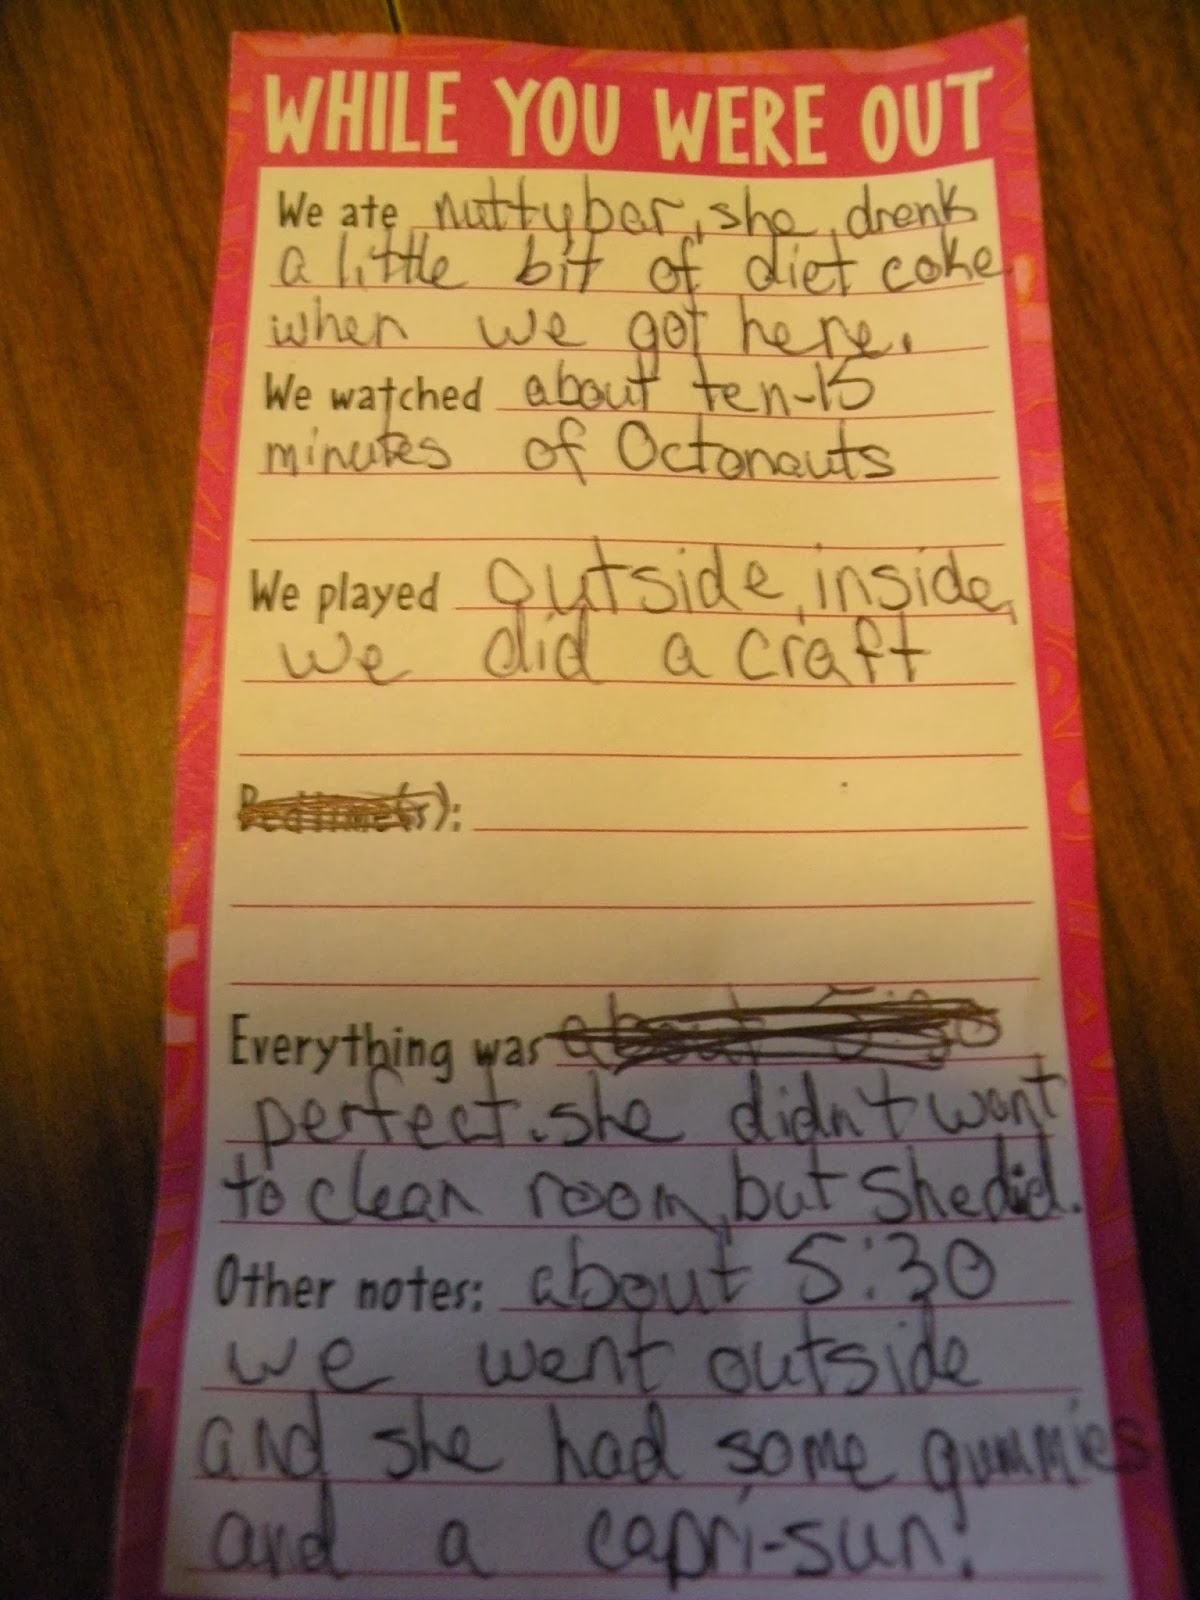 WHILE YOU WERE OUT
We ate nuttybar, she drenk
a little bit of diet coke
when we got here.
We watched about ten-15
minutes of Octonauts
We played outside, inside,
we did a craft
Bedtime(s):
Everything was about 5:30
perfect. she didn't want
to clean room, but she did.
Other notes: about 5:30
we went outside
and she had some gummies
and a capri-sun!